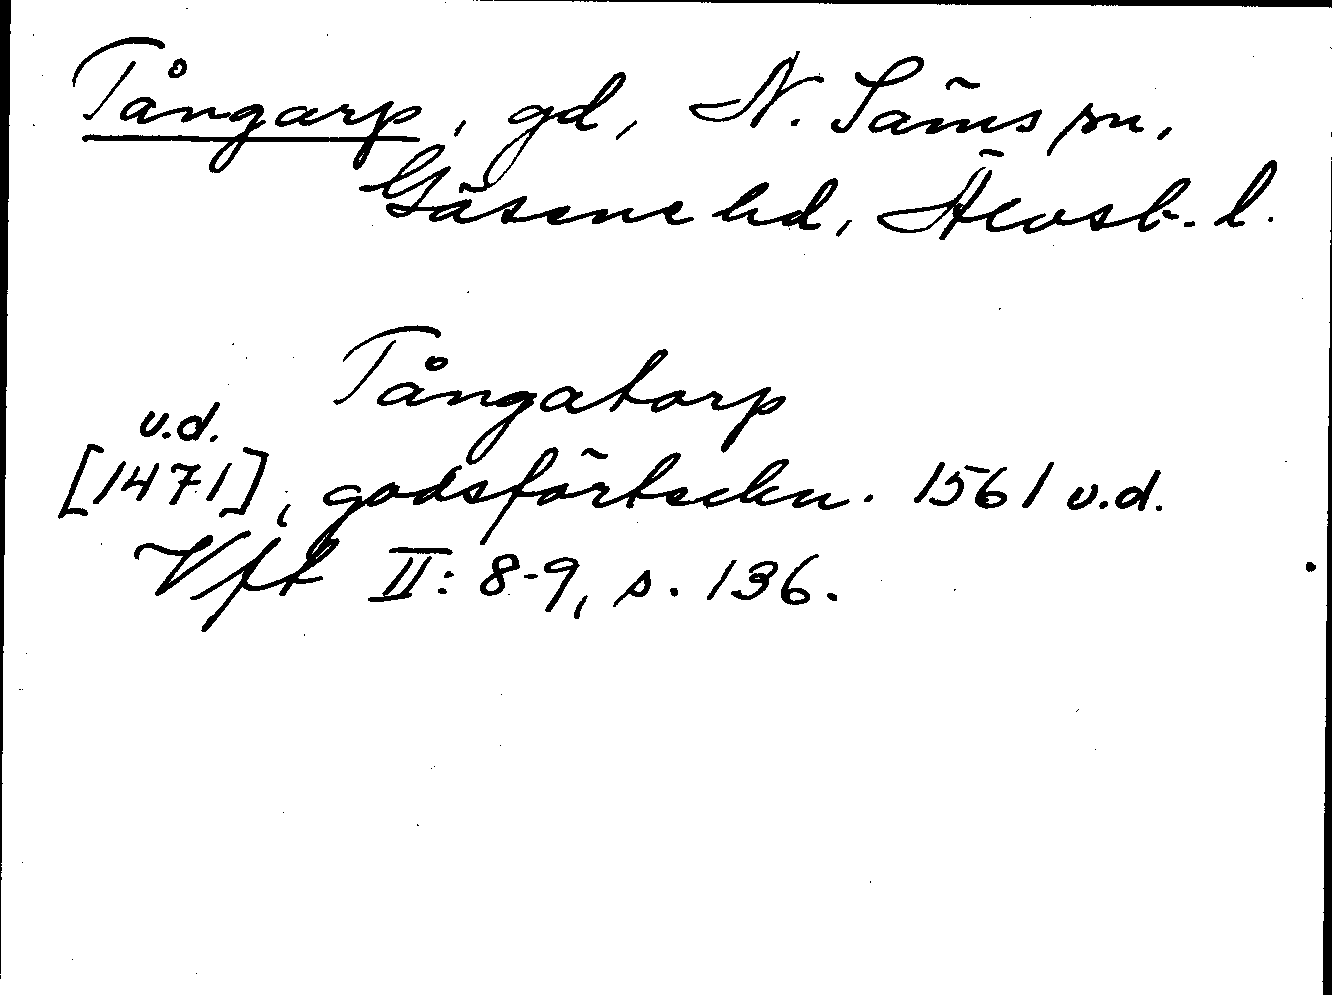 Tångarp, gd, N. Säms sn,
Gäsene hd, Älvsb. l.
Tångatorp
u.d.
[1471], godsförteckn. 1561 u.d.
Vft II: 8-9, s. 136.